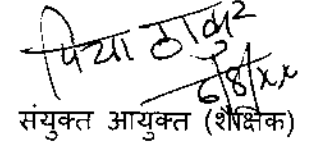 पिया ठाकुर
6/8/xx
संयुक्त आयुक्त (शैक्षिक)